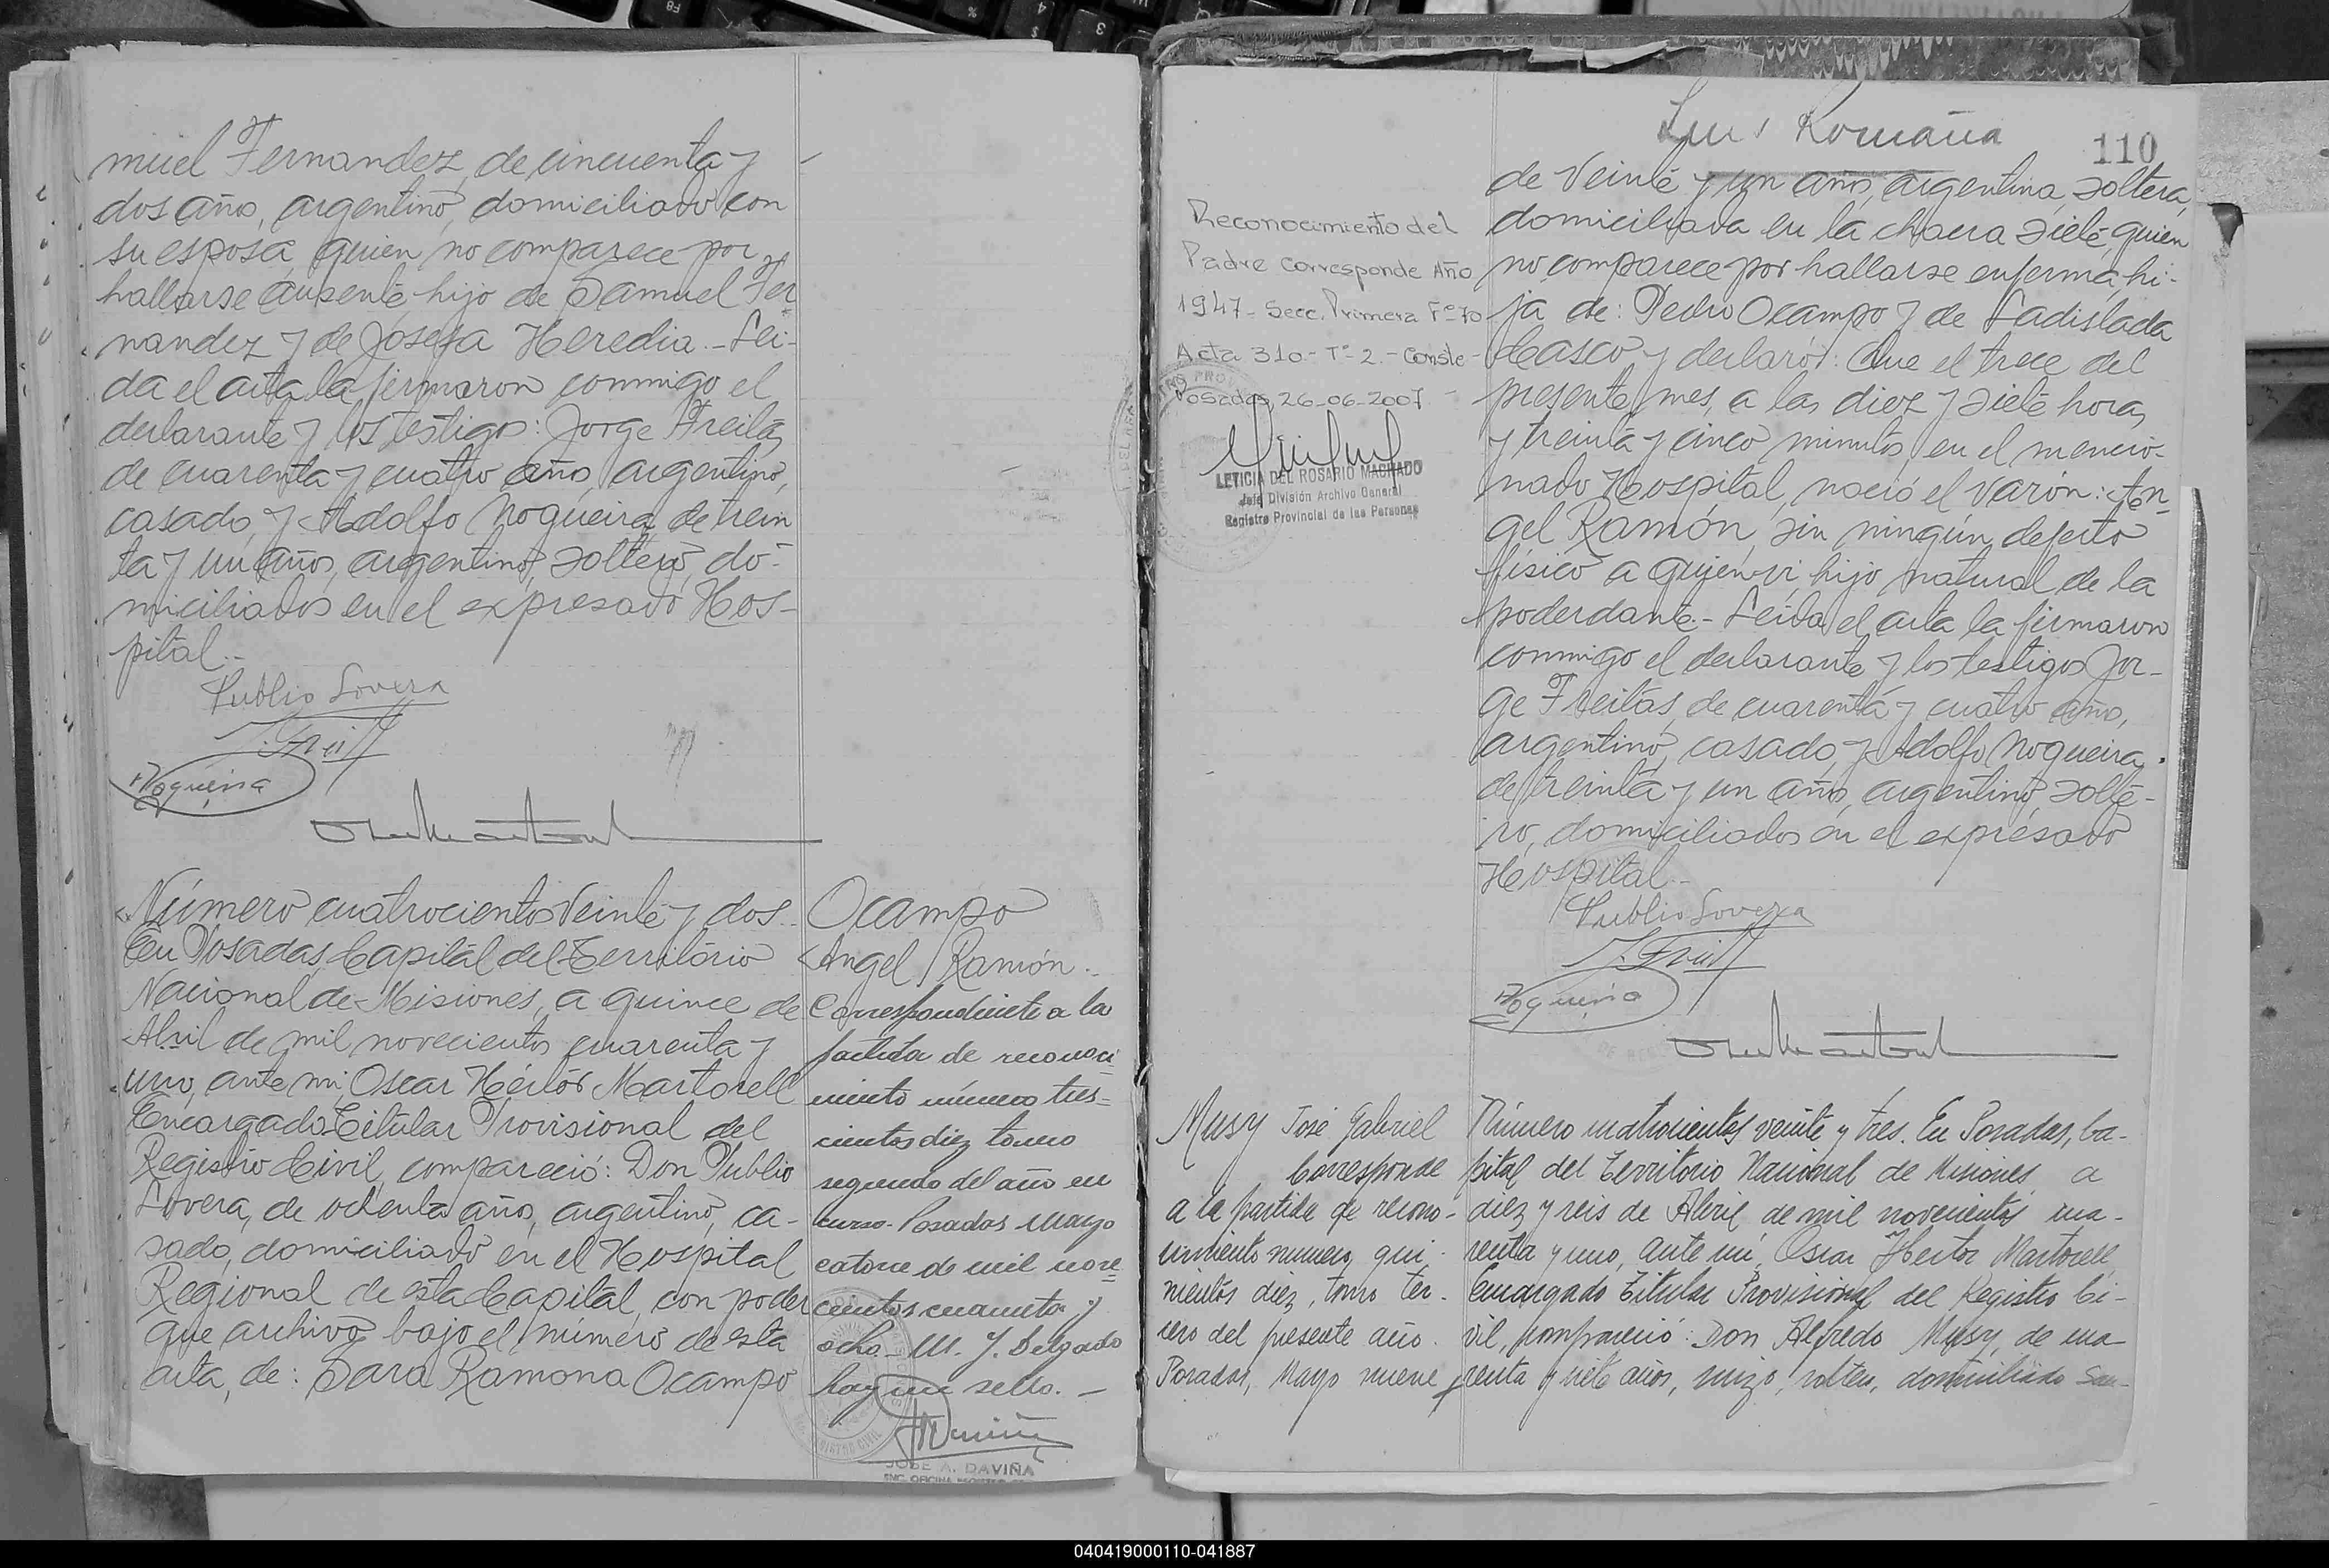 muel Fernandez, de cincuenta y
dos años, argentino, domiciliado con
su esposa, quien no comparece por
hallarse ausente, hijo de Samuel Fer
nandez y de Josefa Heredia.- Leí-
da el acta la firmaron conmigo el
declarante y los testigos: Jorge Freitas,
de cuarenta y cuatro años, argentino,
casado, y Adolfo Nogueira, de trein
ta y un años, argentino, soltero, do-
miciliados en el expresado Hos-
pital.-
Publio Lovera
J. Freit
ANogueira
Número cuatrocientos veinte y dos.-
En Posadas, Capital del Territorio
Nacional de Misiones, a quince de
Abril de mil novecientos cuarenta y
uno, ante mi, Oscar Héctor Martorell
Encargado Titular Provisional del
Registro Civil, compareció: Don Publio
Lovera, de ochenta años, argentino, ca-
sado, domiciliado en el Hospital
Regional de esta Capital, con poder
que archivo bajo el número de esta
acta, de: Sara Ramona Ocampo
Ocampo
Angel Ramón.-
Correspondiente a la
partida de reconoci
miento número tres=
cientos diez tomo
segundo del año en
curso. Posadas Mayo
catorce de mil nove
cientos cuarenta y
ocho. M. J. Delgado
hay un sello. -
JOSE A. DAVIÑA
ENC. OFICINA REGISTRO
Luis Romaña
110
de veinte y un años, argentina, soltera,
domiciliada en la chacra siete, quien
no comparece por hallarse enferma, hi-
ja de: Pedro Ocampo y de Ladislada
Casco y declaró: Que el trece del
presente mes, a las diez y siete horas
y treinta y cinco minutos, en el mencio-
nado Hospital, nació el varón: An
gel Ramón, sin ningún defecto
físico a quien ví, hijo natural de la
poderdante.- Leída el acta la firmaron
conmigo el declarante y los testigos Jor-
ge Freitas, de cuarenta y cuatro años,
argentino, casado, y Adolfo Nogueira,
de treinta y un años, argentino, solte-
ro, domiciliados en el expresado
Hospital.-
Reconocimiento del
Padre corresponde Año
1947- Secc. Primera Fº 70
Acta 310.- Tº- 2.- Conste-
Posadas, 26-06-2007-
LETICIA DEL ROSARIO MACHADO
Jefe División Archivo General
Registro Provincial de las Personas
Publio Lovera
J. Freit
ANogueira
Musy José Gabriel
Corresponde
a la partida de recono-
cimiento número qui-
nientos diez, tomo ter-
cero del presente año.
Posadas, Mayo nueve
Número cuatrocientos veinte y tres. En Posadas, Ca-
pital del Territorio Nacional de Misiones, a
diez y seis de Abril de mil novecientos cua-
renta y uno, ante mí, Oscar Hector Martorell,
Encargado Titular Provisional del Registro Ci-
vil, compareció: Don Alfredo Musy, de cua
renta y siete años, suizo, soltero, domiciliado San-
040419000110-041887